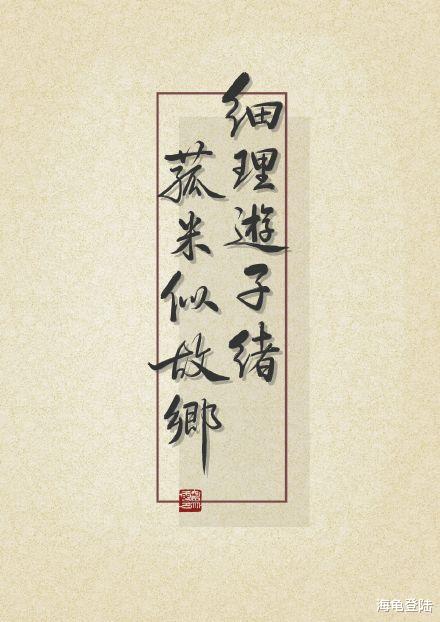 细理遊子绪
菰米似故鄉
海龟登陆